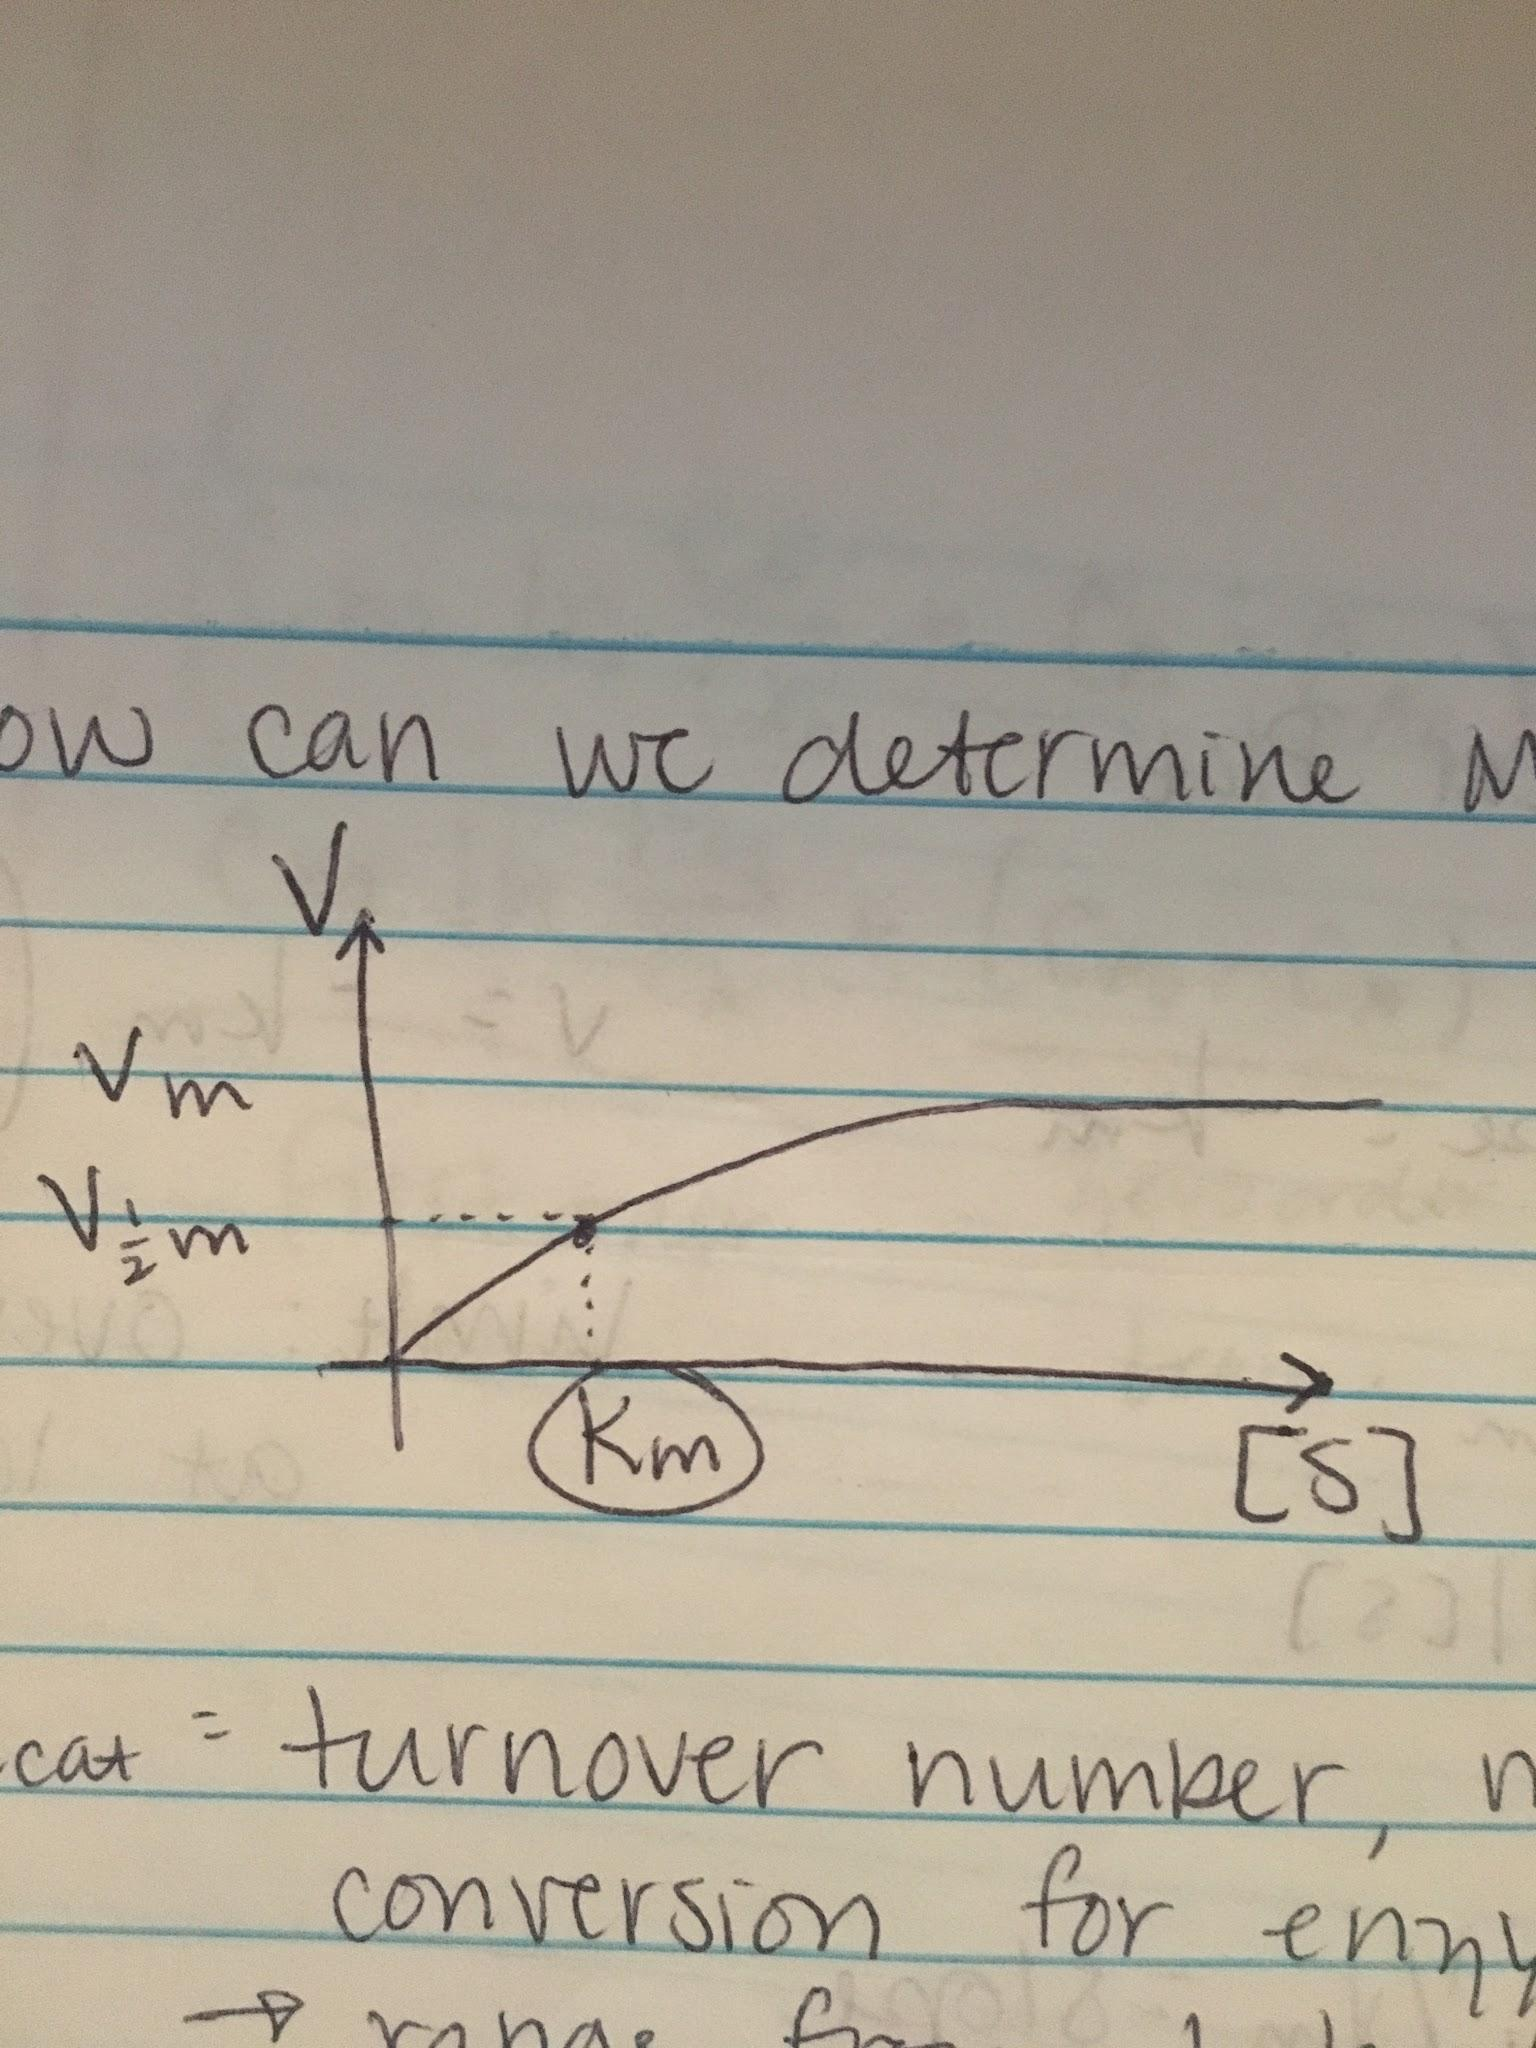 ow can we determine M
V
Vm
V½m
Km
[S]
cat = turnover number, n
conversion for enzy
→ range from